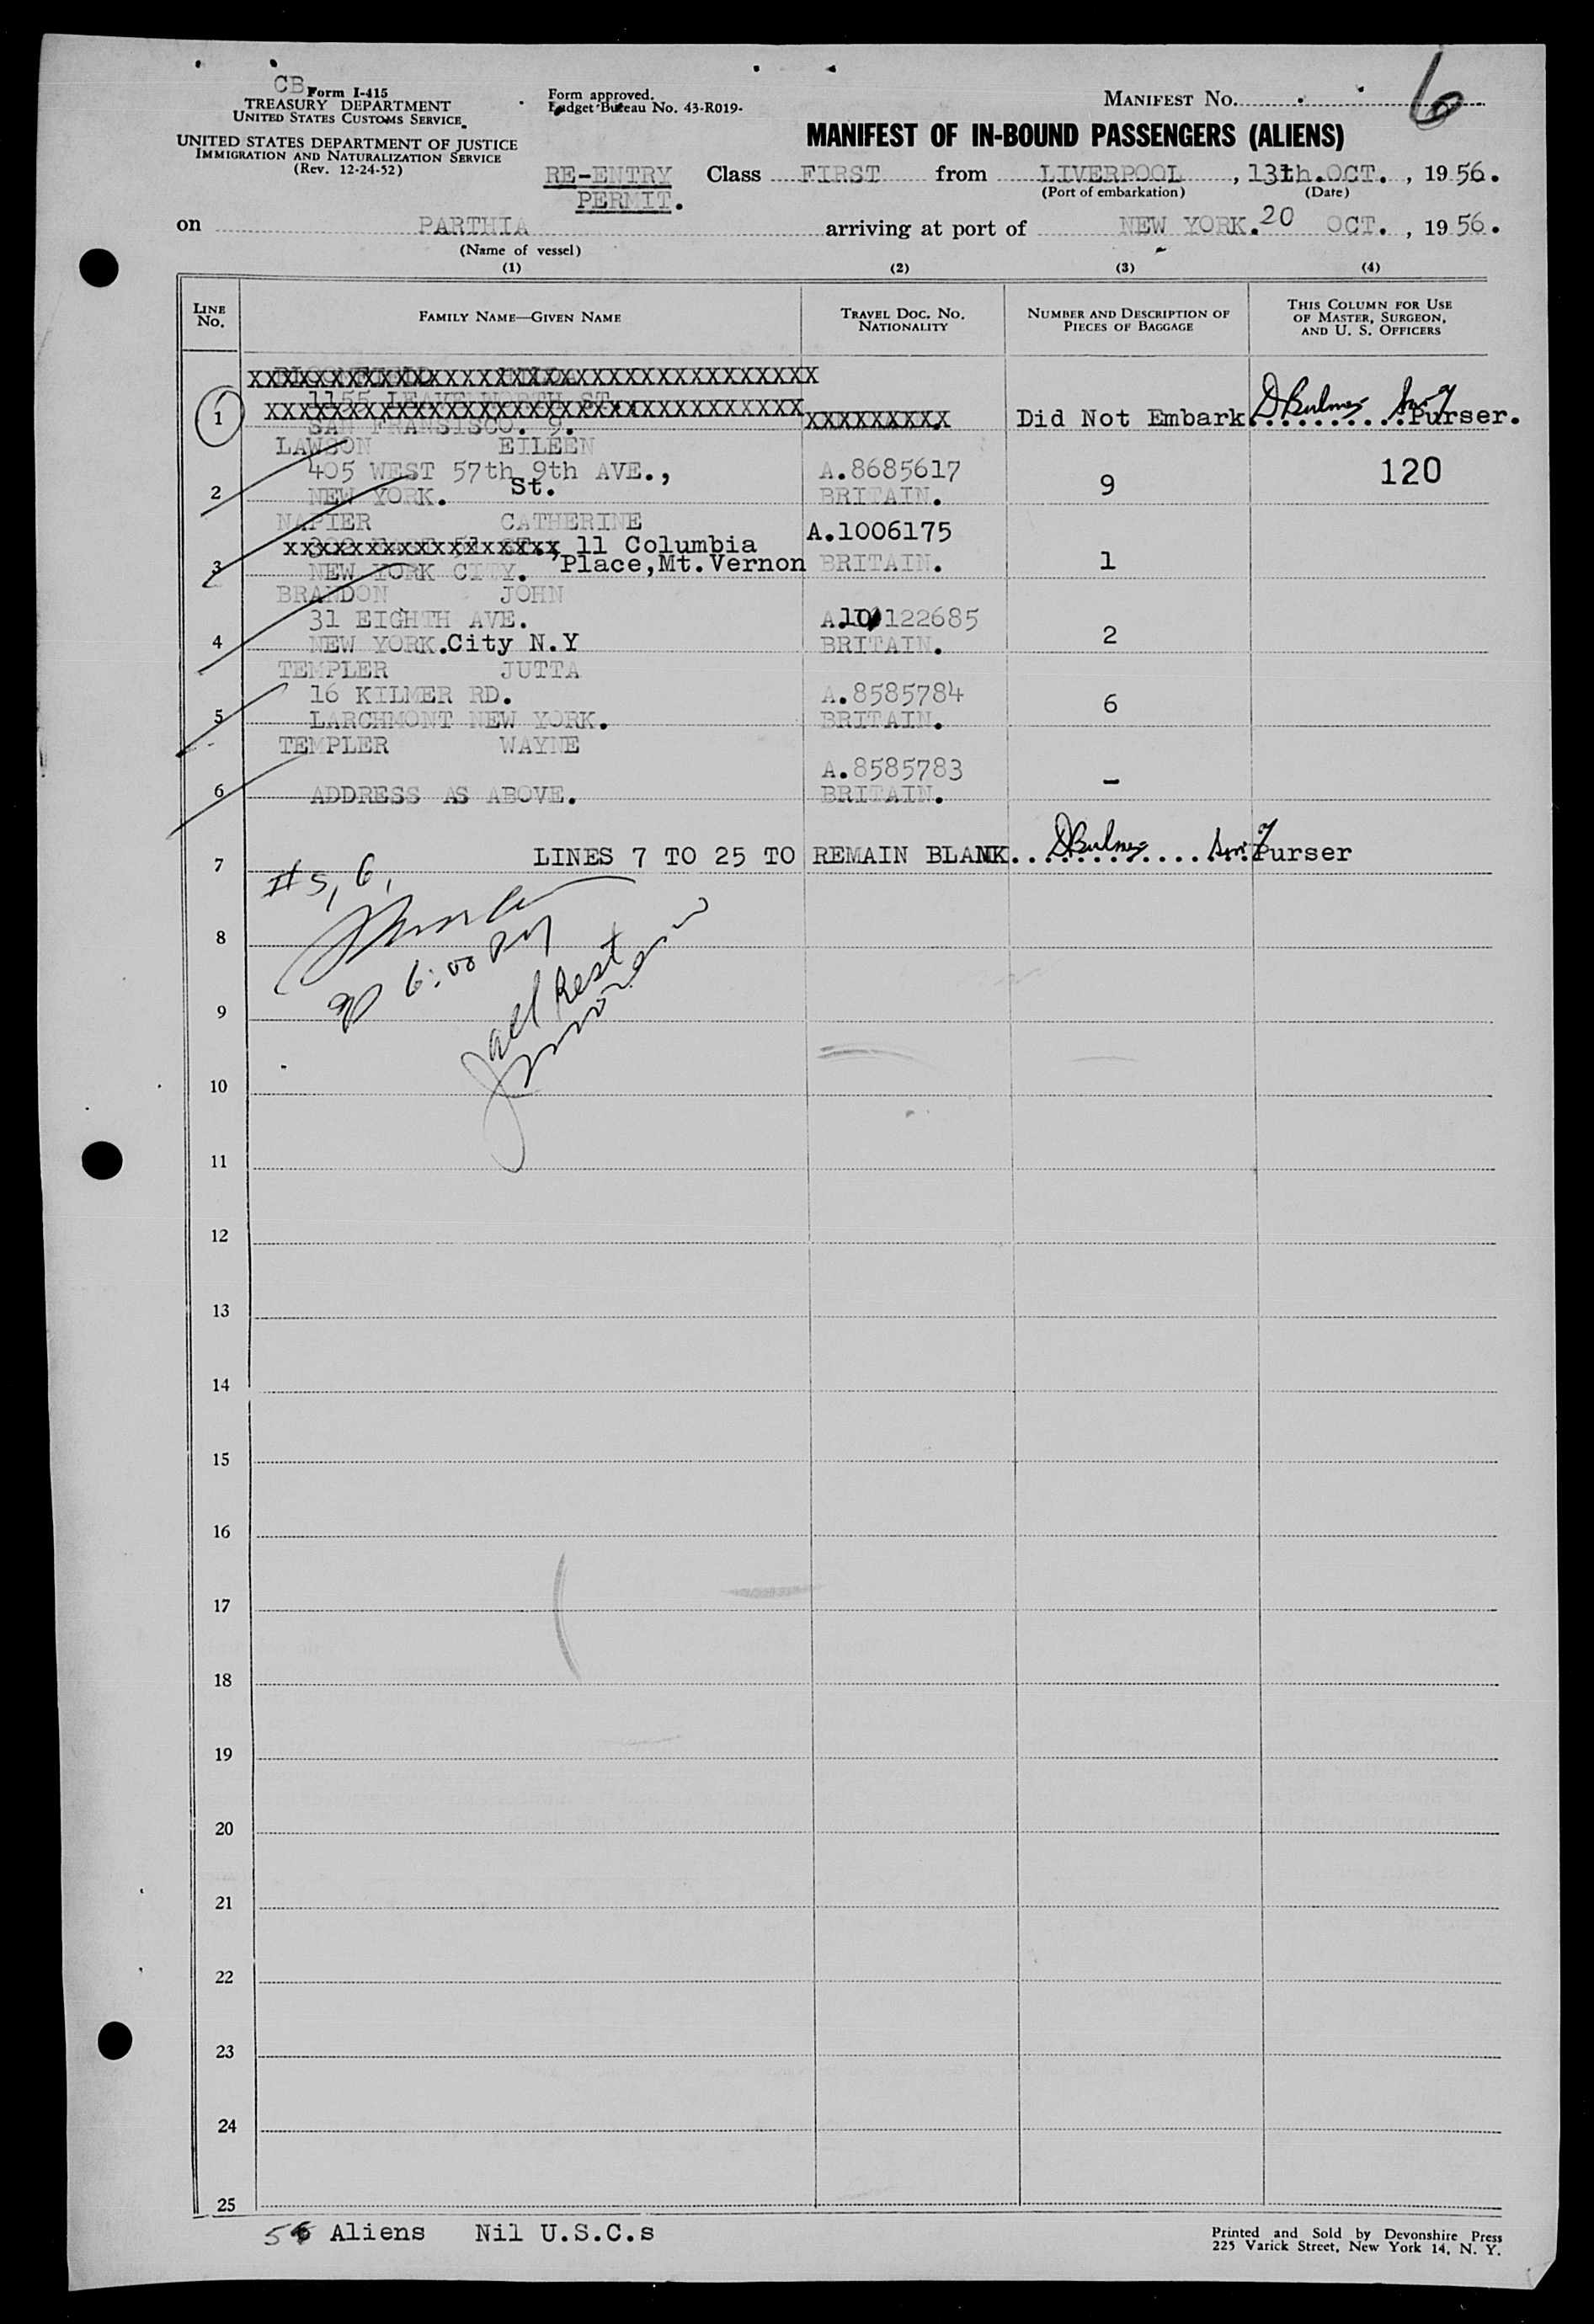 CB Form I-415
TREASURY DEPARTMENT
UNITED STATES CUSTOMS SERVICE
UNITED STATES DEPARTMENT OF JUSTICE
IMMIGRATION AND NATURALIZATION SERVICE
(Rev. 12-24-52)
Form approved.
Budget Bureau No. 43-R019-
MANIFEST NO. 6
MANIFEST OF IN-BOUND PASSENGERS (ALIENS)
RE-ENTRY PERMIT.
Class FIRST from LIVERPOOL, 13th.OCT., 1956.
(Port of embarkation) (Date)
on PARTHIA arriving at port of NEW YORK. 20 OCT., 1956.
(Name of vessel)
(1) (2) (3) (4)
LINE No.
FAMILY NAME—GIVEN NAME
TRAVEL DOC. NO. NATIONALITY
NUMBER AND DESCRIPTION OF PIECES OF BAGGAGE
THIS COLUMN FOR USE OF MASTER, SURGEON, AND U. S. OFFICERS
XXXXXXXXXXXXXXXXXXXXXXXXXXXXXXXXXXX
1155 LEAVENWORTH ST.
1 SAN FRANSISCO. 9. XXXXXXXXX Did Not Embark..........Purser.
LAWSON EILEEN
405 WEST 57th 9th AVE., A.8685617 120
2 NEW YORK. St. BRITAIN. 9
NAPIER CATHERINE A.1006175
xxxxxxxxxxxxxxxxx, 11 Columbia
3 NEW YORK CITY. Place,Mt.Vernon BRITAIN. 1
BRANDON JOHN
31 EIGHTH AVE. A.10122685
4 NEW YORK.City N.Y BRITAIN. 2
TEMPLER JUTTA
16 KILMER RD. A.8585784
5 LARCHMONT NEW YORK. BRITAIN. 6
TEMPLER WAYNE
A.8585783
6 ADDRESS AS ABOVE. BRITAIN. -
7 LINES 7 TO 25 TO REMAIN BLANK..............Purser
#5, 6,
8
6:00 PM
all Rest
9
10
11
12
13
14
15
16
17
18
19
20
21
22
23
24
25
5 Aliens Nil U.S.C.s
Printed and Sold by Devonshire Press
225 Varick Street, New York 14, N. Y.